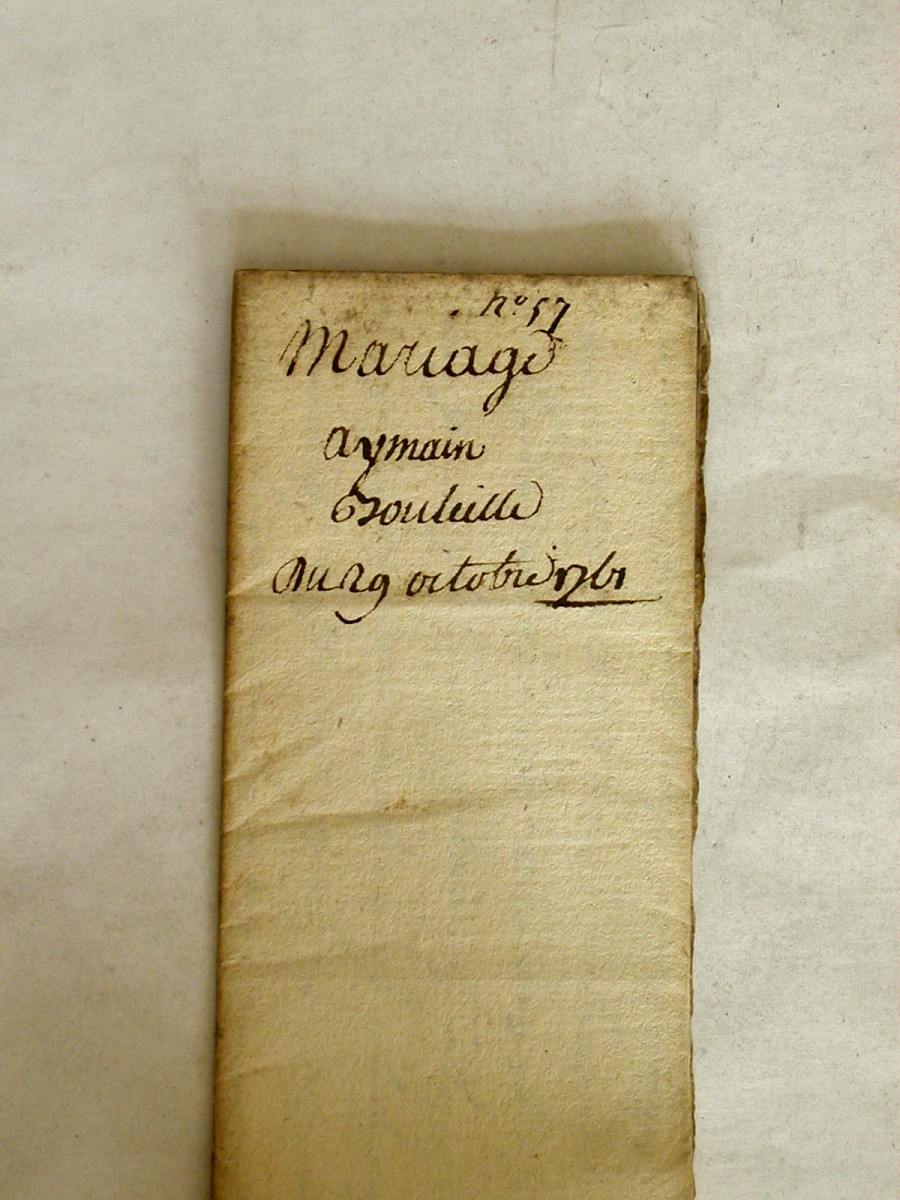 no 57
Mariage
aymain
Bouteille
Du 29 octobre 1761